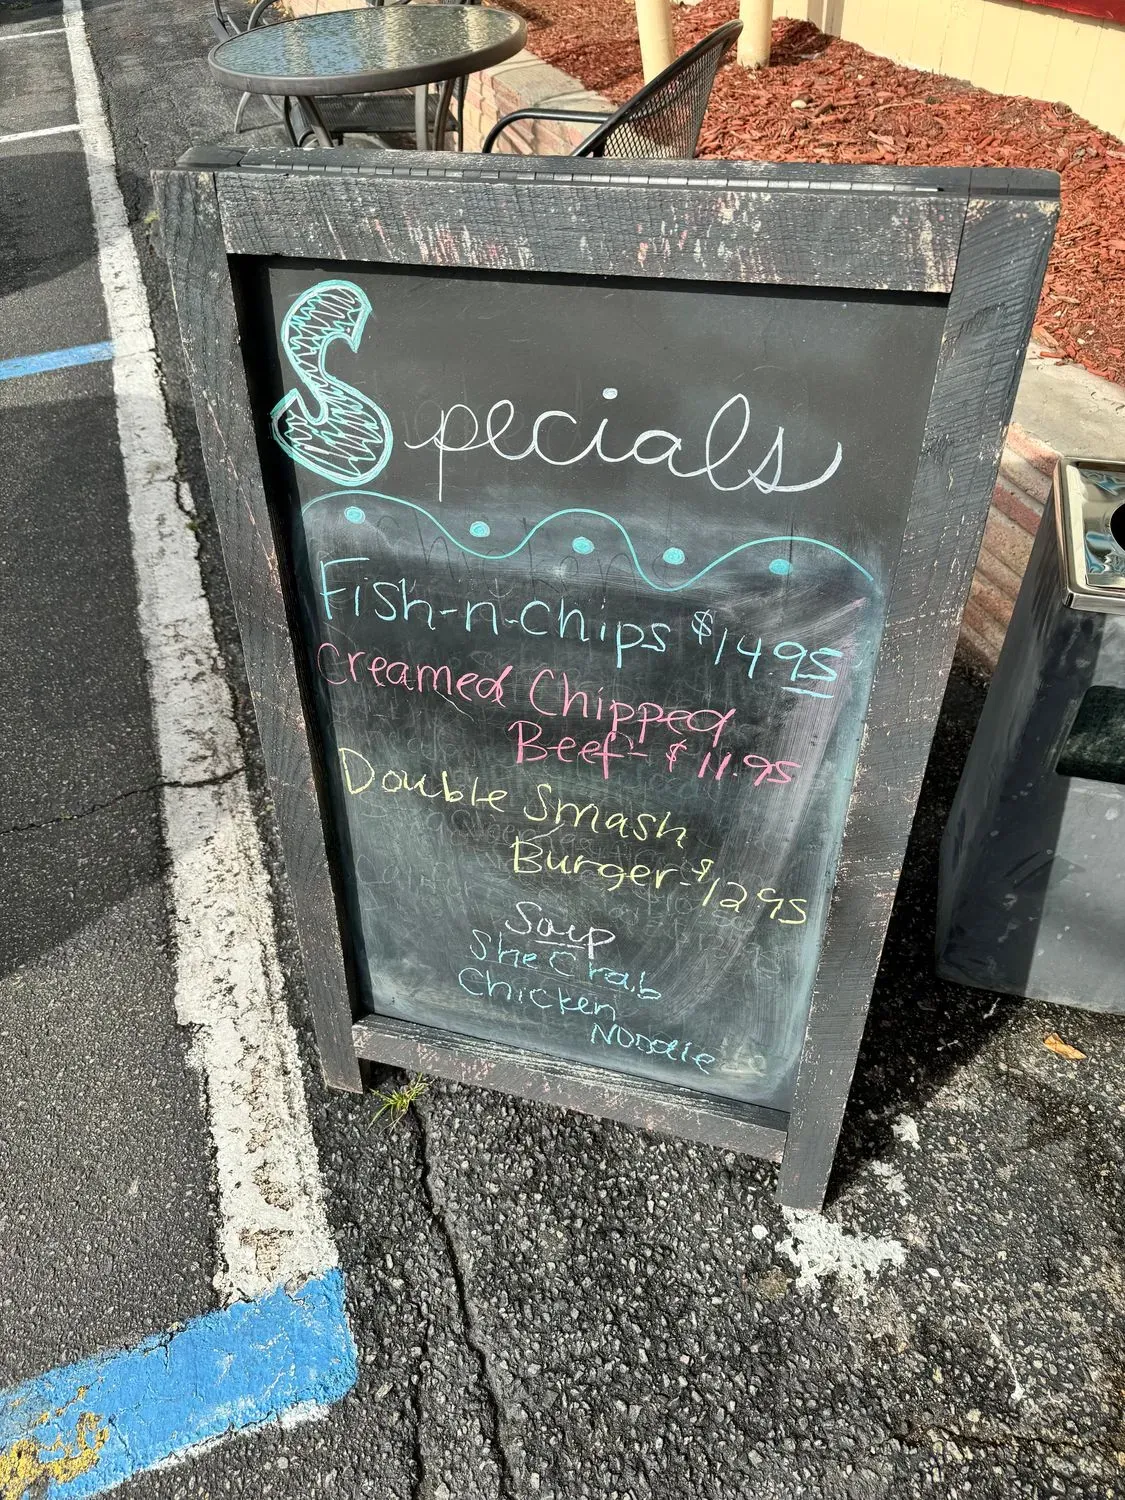 Specials
Fish-n-Chips $14.95
Creamed Chipped
Beef- $11.95
Double Smash
Burger-$12.95
Soup
She Crab
Chicken
Noodle